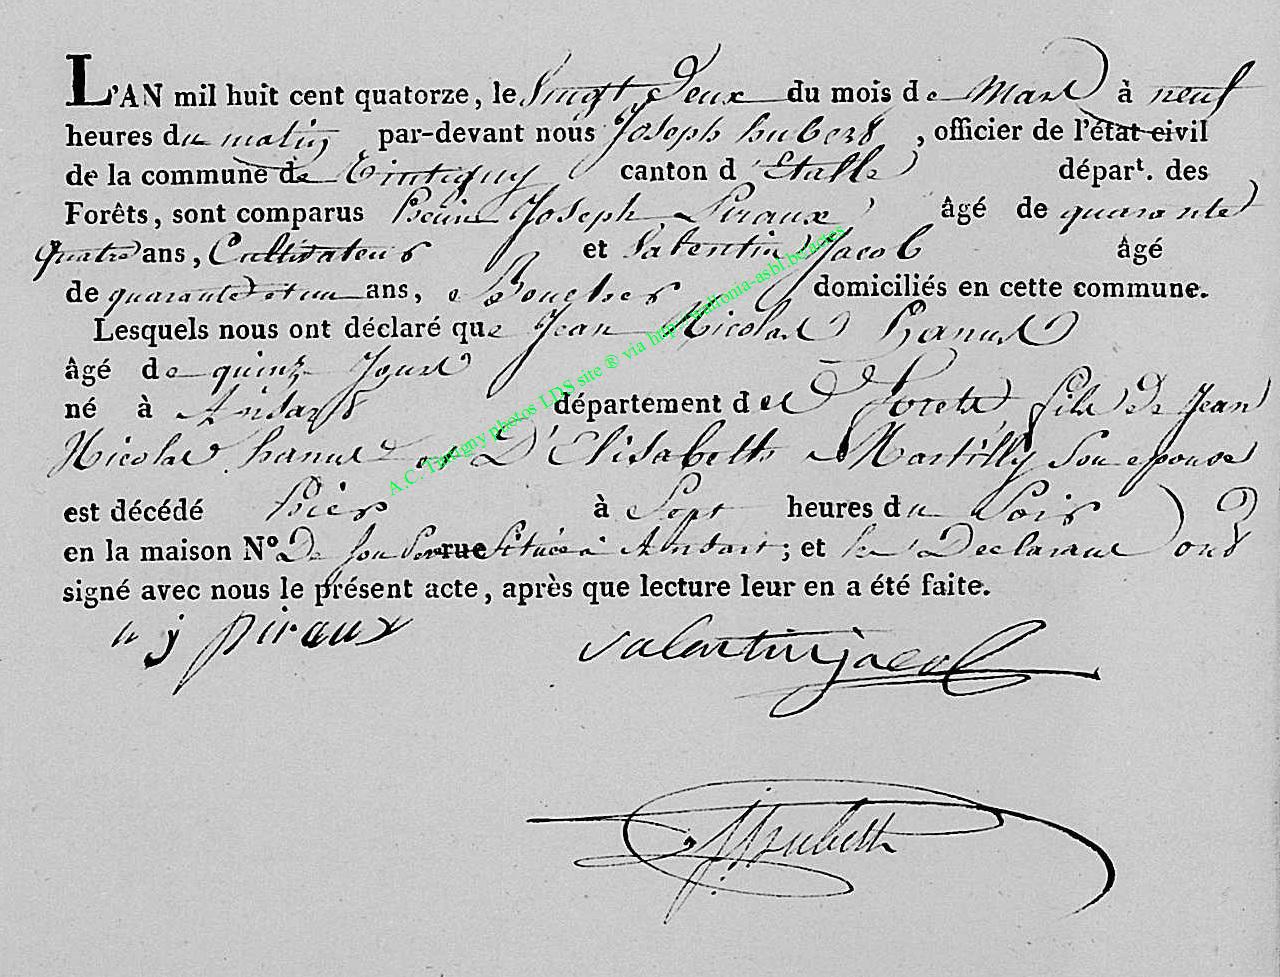 L'AN mil huit cent quatorze, le Vingt Deux du mois de Mars à neuf
heures du matin par-devant nous Joseph hubert, officier de l'état civil
de la commune de Tintigny canton d'Etalle départ. des
Forêts, sont comparus henri Joseph Piraux âgé de quarante
quatre ans, Cultivateur et Valentin Jacob âgé
de quarante et un ans, Boucher domiciliés en cette commune.
Lesquels nous ont déclaré que Jean Nicolas hanus
âgé de quinze Jours
né à Ansart département des forets fils de Jean
Nicolas hanus et D'Elisabeth Martilly Son epouse
est décédé hier à Sept heures du Soir
en la maison N° De son Pere rue Situee à Ansart; et les Declarans ont
signé avec nous le présent acte, après que lecture leur en a été faite.
h j piraux valentin jacob
J hubert
A.C. Tintigny photos LDS site ® via http://wallonia-asbl.be/actes